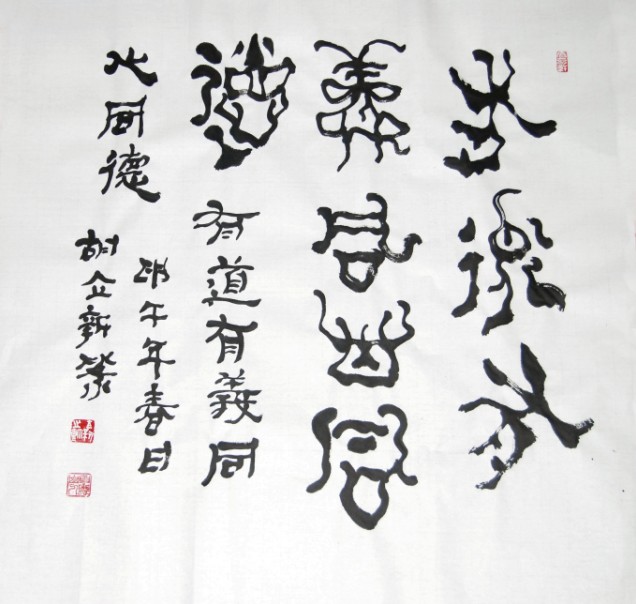 有道有
義同心同
德 有道有義同
心同德
午年春日
胡立新篆